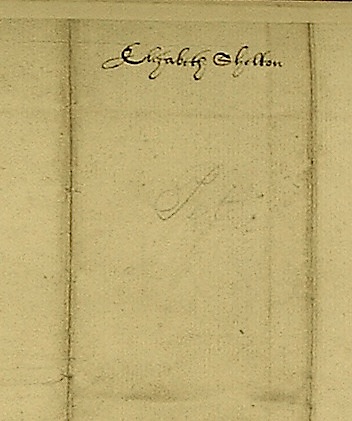 Elizabeth Shelton